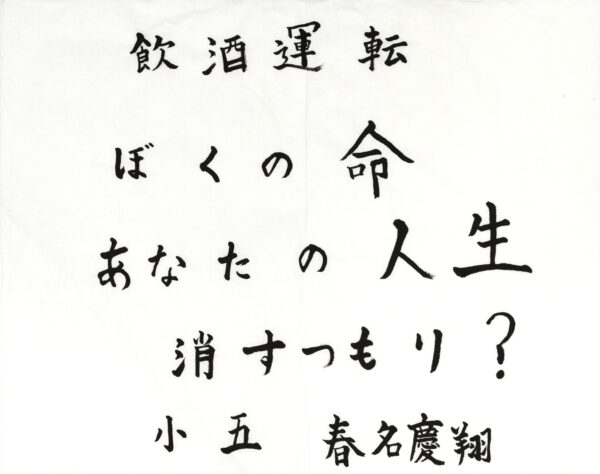 飲酒運転
ぼくの命
あなたの人生
消すつもり?
小五 春名慶翔